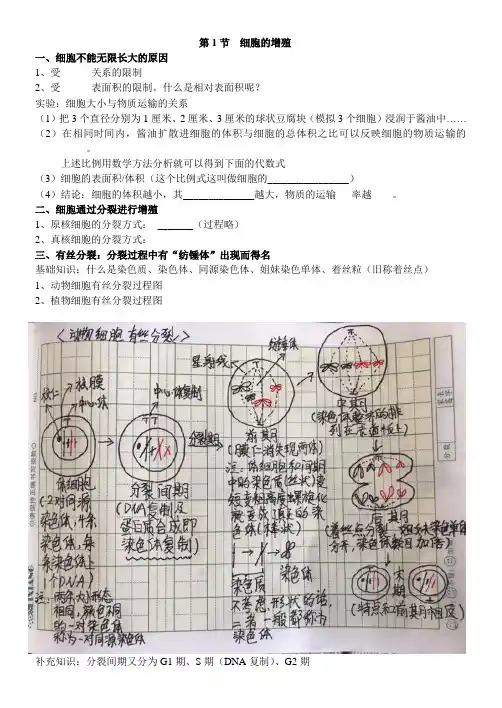 第1节 细胞的增殖
一、细胞不能无限长大的原因
1、受______关系的限制
2、受______表面积的限制。什么是相对表面积呢?
实验:细胞大小与物质运输的关系
(1)把3个直径分别为1厘米、2厘米、3厘米的球状豆腐块(模拟3个细胞)浸润于酱油中……
(2)在相同时间内,酱油扩散进细胞的体积与细胞的总体积之比可以反映细胞的物质运输的
______。
上述比例用数学方法分析就可以得到下面的代数式
(3)细胞的表面积/体积(这个比例式这叫做细胞的________________)
(4)结论:细胞的体积越小,其______________越大,物质的运输 率越 。
二、细胞通过分裂进行增殖
1、原核细胞的分裂方式:_______(过程略)
2、真核细胞的分裂方式:
三、有丝分裂:分裂过程中有“纺锤体”出现而得名
基础知识:什么是染色质、染色体、同源染色体、姐妹染色单体、着丝粒(旧称着丝点)
1、动物细胞有丝分裂过程图
2、植物细胞有丝分裂过程图
<动物细胞有丝分裂>
核仁
核膜
中心体
中心体复制
星射线
纺锤体
分裂期
体细胞
(2对同源
染色体,4条
染色体,每
条染色体上
1个DNA)
注:两条大小形态
相同,颜色不同
的一对染色体
称为一对同源染色体
分裂间期
(DNA复制及
蛋白质合成即
染色体复制)
前期
(膜仁消失现两体)
注:体细胞和间期
中的染色质(丝状)变
短变粗高度螺旋化
染色质
染色体
二者一般都称为
染色体
中期
列在赤道板上)
后期
分开,染色体数目加倍)
末期
(特点和前期相反)
补充知识:分裂间期又分为G1期、S期(DNA复制)、G2期